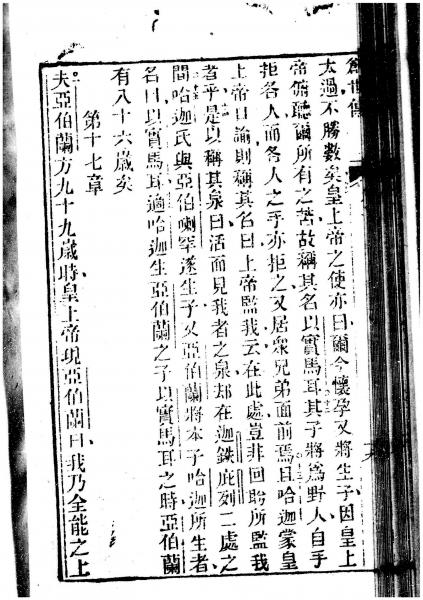 創世傳
太過不勝數矣皇上帝之使亦曰爾今懷孕又將生子因皇上
帝俯聽爾所有之苦故稱其名以實馬耳其子將為野人自手
拒各人而各人之手亦拒之又居眾兄弟面前焉且哈迦蒙皇
上帝曰諭則稱其名曰上帝監我云在此處豈非回盻所監我
者乎是以稱其泉曰活而見我者之泉却在迦鉄庇列二處之
間哈迦氏與亞伯喇罕遂生子又亞伯蘭將本子哈迦所生者
名曰以實馬耳適哈迦生亞伯蘭之子以實馬耳之時亞伯蘭
有八十六歲矣
第十七章
夫亞伯蘭方九十九歲時皇上帝現亞伯蘭曰我乃全能之上